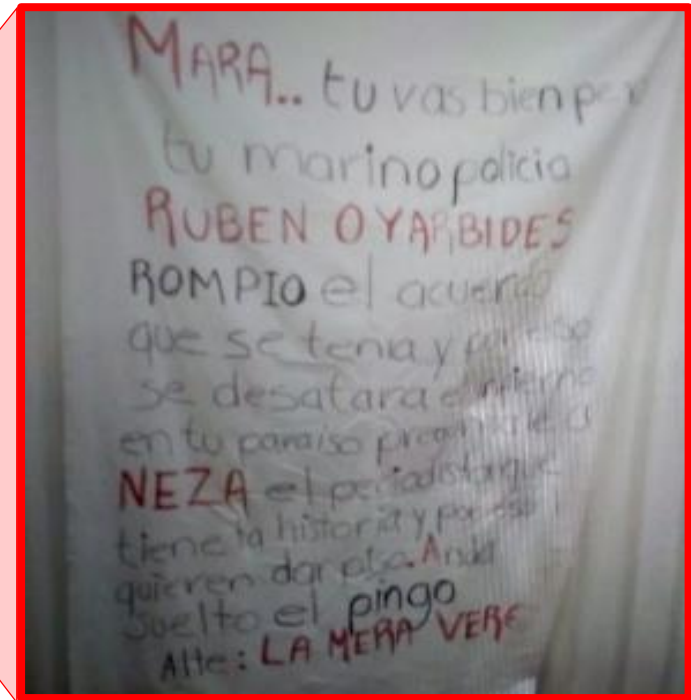 MARA.. tu vas bien
tu marino policia
RUBEN OYARBIDES
ROMPIO el acuerdo
que se tenia y por eso
se desatara el infierno
en tu paraiso
NEZA el periodista que
tiene la historia y por eso
quieren dar piso. Anda
suelto el pingo
Atte: LA MERA VERE